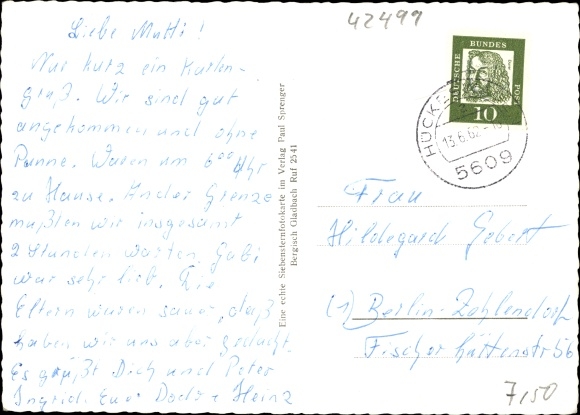 42499
Liebe Mutti!
Nur kurz ein Karten-
gruß. Wir sind gut
angekommen und ohne
Panne. Waren um 6⁰⁰ Uhr
zu Hause. An der Grenze
mußten wir insgesamt
2 Stunden warten. Gabi
war sehr lieb. Die
Eltern waren sauer, daß
haben wir uns aber gedacht.
Es grüßt Dich und Peter
Ingrid. Eure Doris + Heinz
Eine echte Siebensternfotokarte im Verlag Paul Sprenger
Bergisch Gladbach Ruf 2541
DEUTSCHE BUNDES POST
10
13.6.62
5609
Frau
Hildegard Gebert
(1) Berlin-Zehlendorf
Fischerhüttenstr 56
7,50